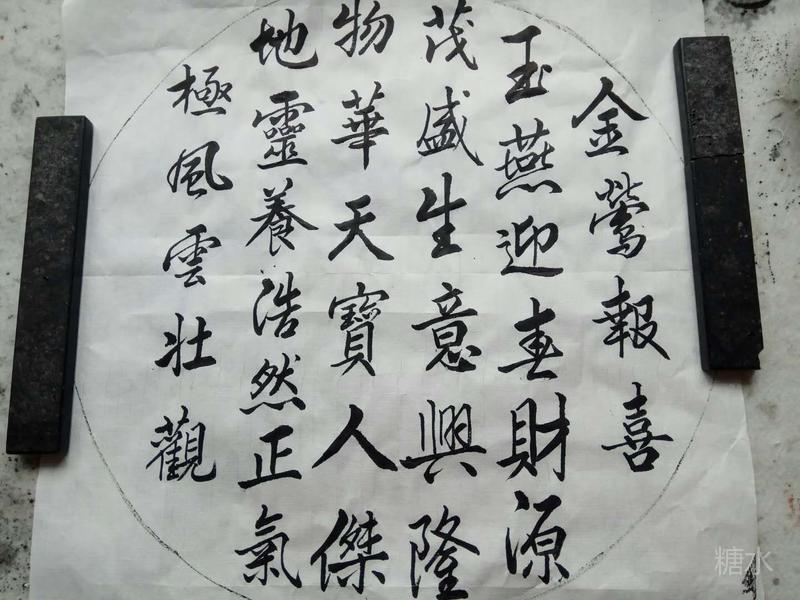 金鶯報喜
玉燕迎春財源
茂盛生意興隆
物華天寶人傑
地靈養浩然正氣
極風雲壯觀
糖水